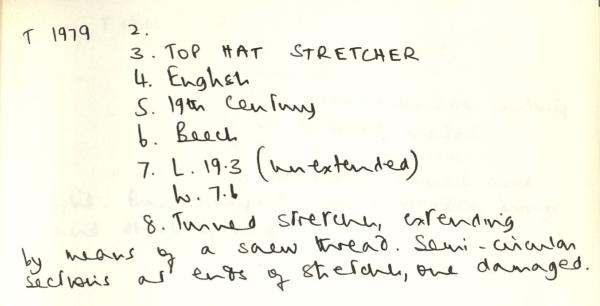 T 1979 2.
3. TOP HAT STRETCHER
4. English
5. 19th Century
6. Beech
7. L. 19.3 (unextended)
W. 7.6
8. Turned stretcher, extending
by means of a screw thread. Semi-circular
sections at ends of stretcher, one damaged.